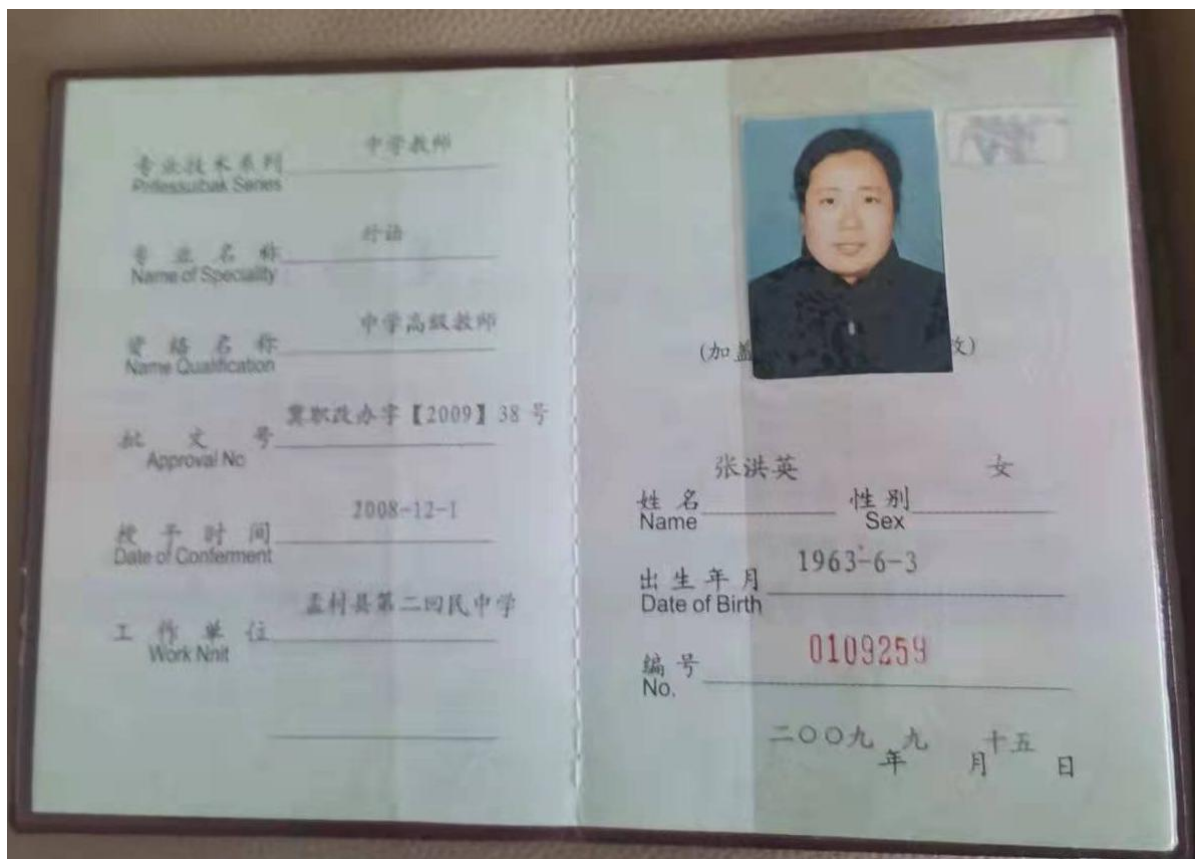 专业技术系列 中学教师
Prifessuibak Series
专业名称
Name of Speciality
资格名称 中学高级教师
Name Qualification
批文号 冀职改办字【2009】38号
Approval No
授予时间 2008-12-1
Date of Conferment
工作单位 孟村县第二回民中学
Work Nnit
(加盖
效)
姓名 张洪英 性别 女
Name Sex
出生年月 1963-6-3
Date of Birth
编号 0109259
No.
二〇〇九年九月十五日